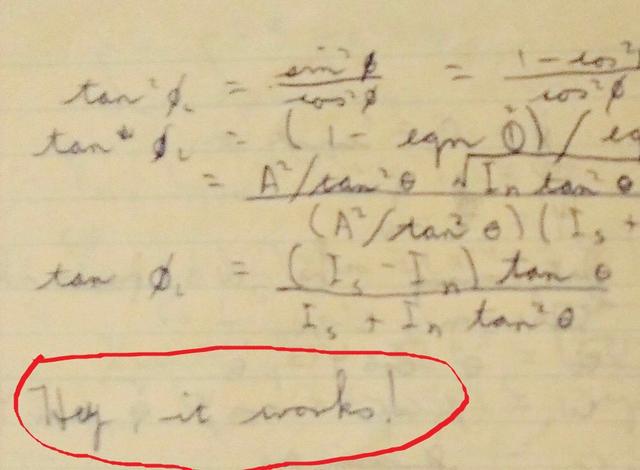 tan² φ₁ = sin² φ / cos² φ = 1 - cos² / cos² φ
tan² φ₁ = (1 - eqn ①) / eq
= A²/tan² θ √ Iₙ tan² θ / (A²/tan² θ)(Iₛ +
tan φ₁ = (Iₛ - Iₙ) tan θ / Iₛ + Iₙ tan² θ
Hey, it works!